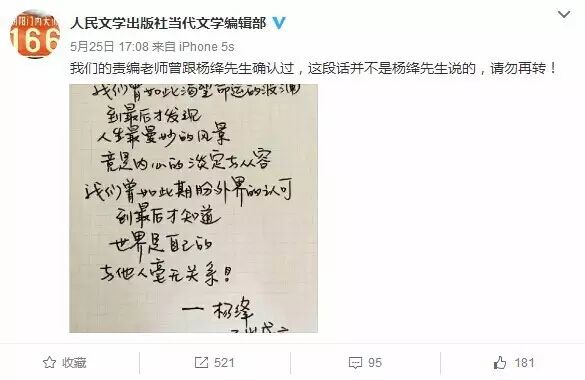 166
人民文学出版社当代文学编辑部
5月25日 17:08 来自 iPhone 5s
我们的责编老师曾跟杨绛先生确认过，这段话并不是杨绛先生说的，请勿再转！
我们曾如此渴望命运的波澜
到最后才发现
人生最曼妙的风景
竟是内心的淡定与从容
我们曾如此期盼外界的认可
到最后才知道
世界是自己的
与他人毫无关系！
一杨绛
收藏
521
95
181